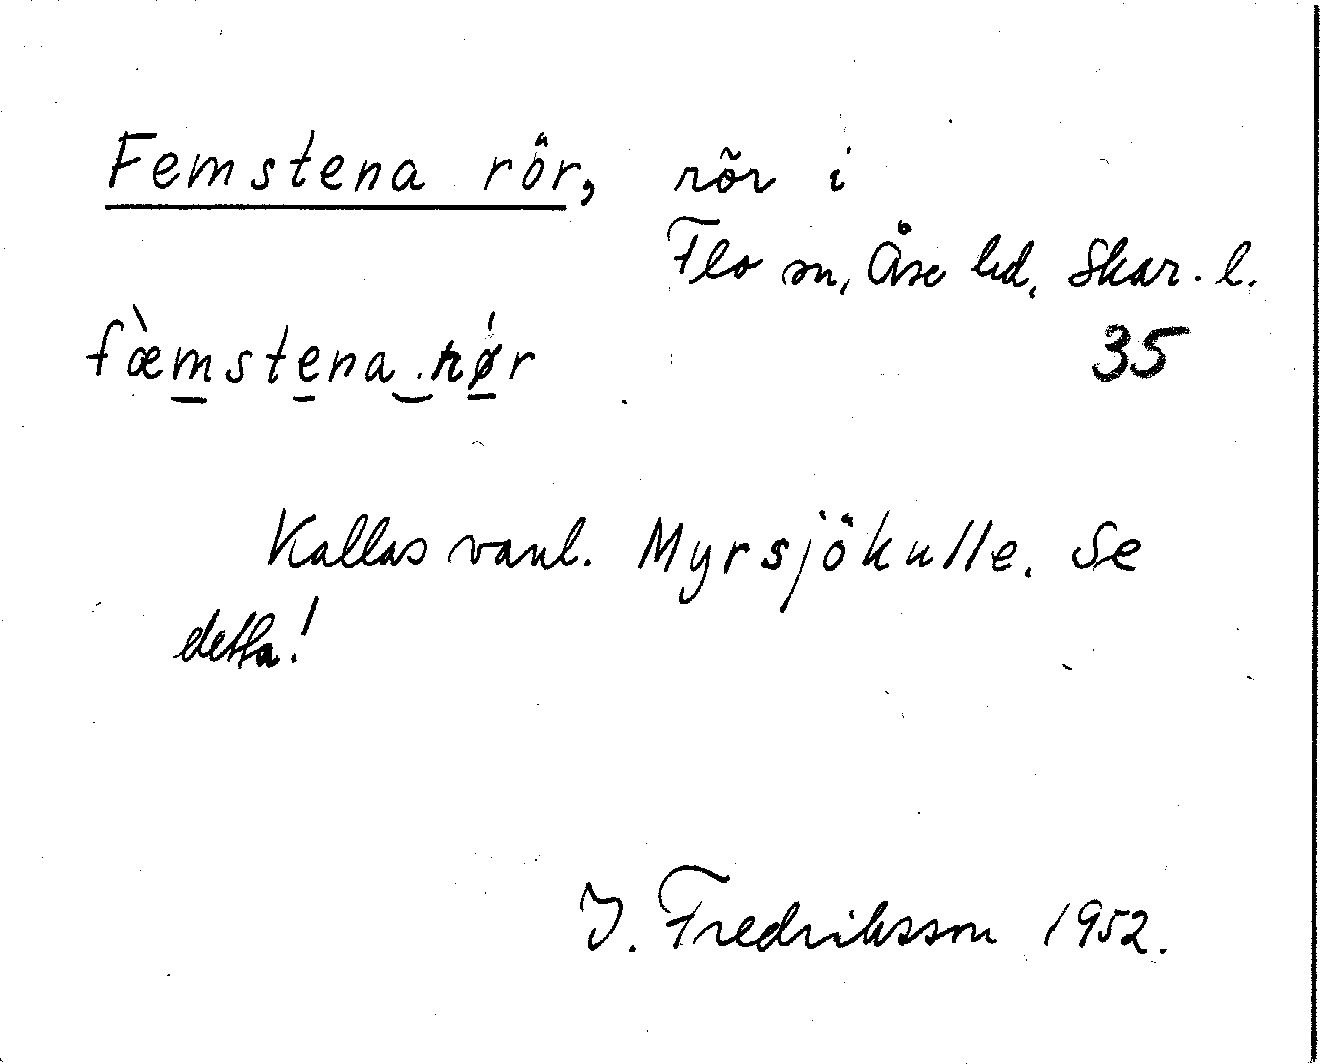 Femstena rör, rör i
Flo sn, Åse hd, Skar. l.
fæ̀mstena rǿr
35
Kallas vanl. Myrsjökulle. Se
detta!
I. Fredriksson 1952.